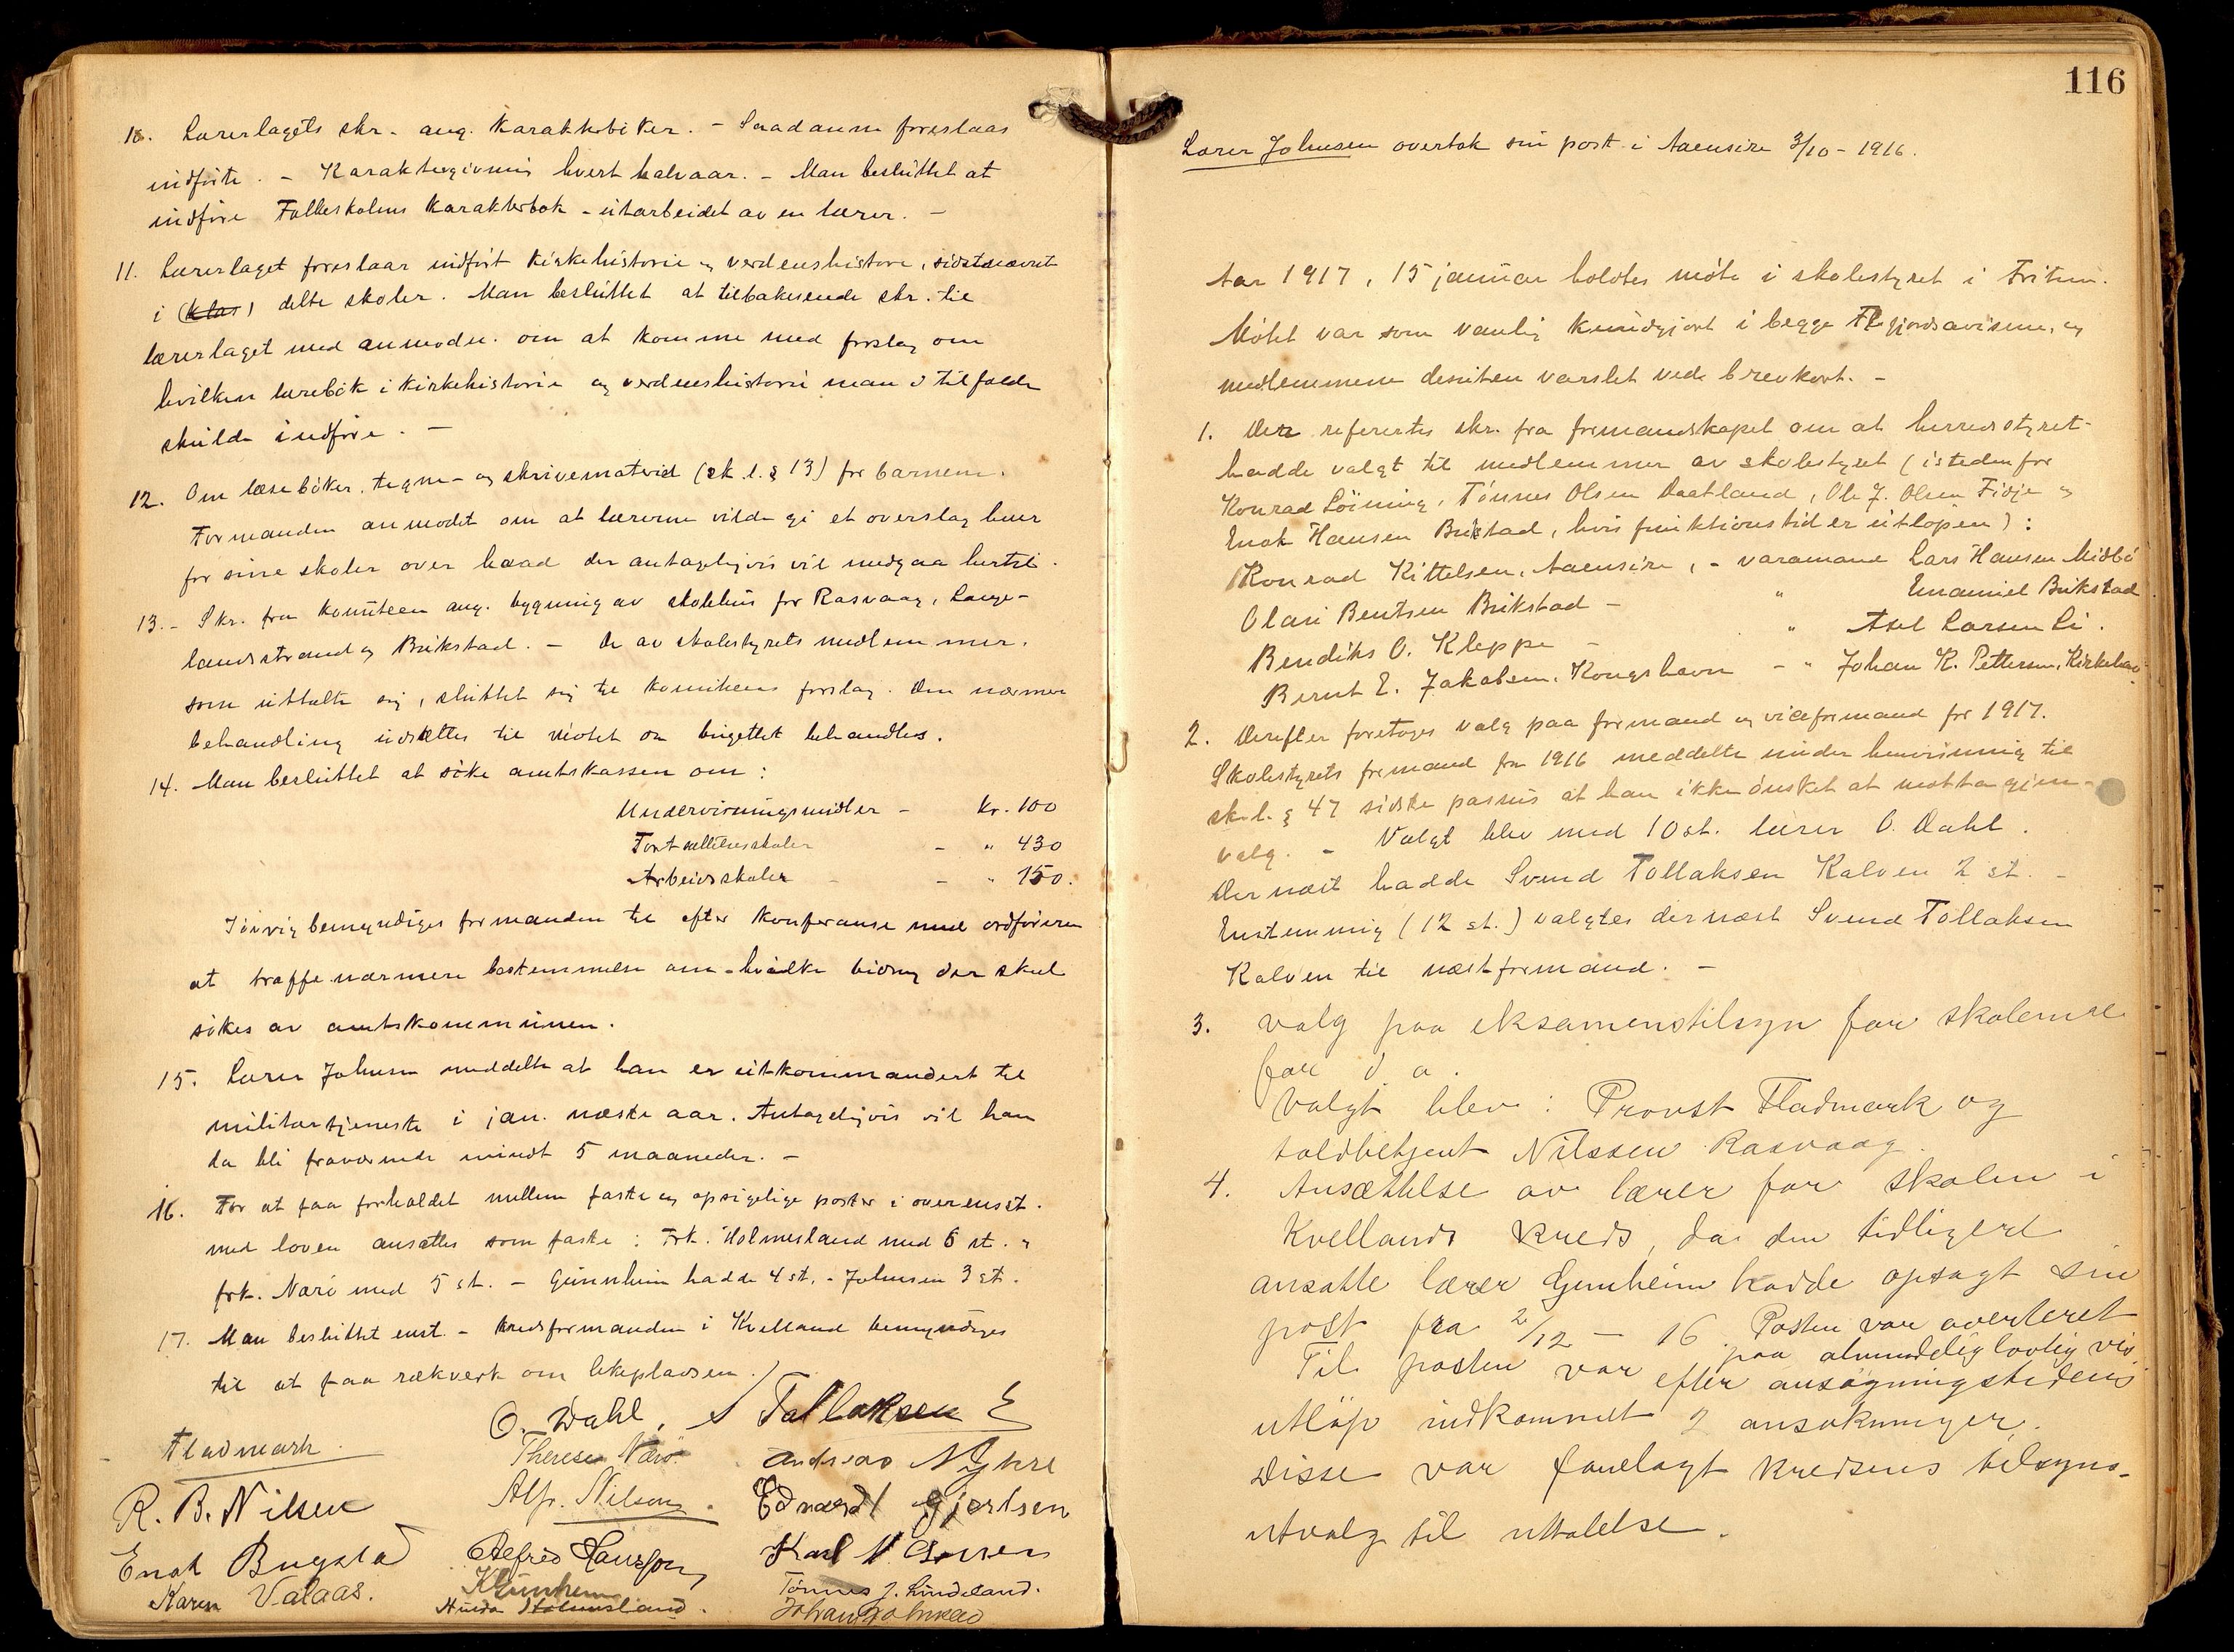 10. Lærerlagets skr. ang. karakterbøker. - Saadanne foreslaas
indførte. - Karaktergivning hvert halvaar. - Man besluttet at
indføre Folkeskolens karakterbok - utarbeidet av en lærer. -
11. Lærerlaget foreslaar indført kirkehistorie og verdenshistorie, sidstnævnte
i (klas) delte skoler. Man besluttet at tilbakesende skr. til
lærerlaget med anmodn. om at komme med forslag om
hvilken lærebok i kirkehistorie og verdenshistorie man i tilfælde
skulde indføre. -
12. Om læsebøker, tegne- og skrivemateriel (sk.l. § 13) for barnene.
Formanden anmodet om at lærerne vilde gi et overslag hver
for sine skoler over hvad der antageligvis vil medgaa hertil.
13. - Skr. fra komiteen ang. bygning av skolehus for Rasvaag, Lange-
landsstrand og Brikstad. - De av skolestyrets medlemmer,
som uttalte sig, sluttet sig til komiteens forslag. Den nærmere
behandling utsættes til møtet om budgettet behandles.
14. Man besluttet at søke amtskassen om:
Undervisningsmidler - kr. 100
Fortsættelsesskoler - " 430
Arbeidsskoler - - " 150.
Iøvrig bemyndiges formanden til efter konferanse med ordføreren
at træffe nærmere bestemmelse om - hvilke bidrag der skal
søkes av amtskommunen.
15. Lærer Johnsen meddelte at han er utkommandert til
militærtjeneste i jan. næste aar. Antageligvis vil han
da bli fraværende mindst 5 maaneder. -
16. For at faa forholdet mellem faste og opsigelige poster i overensst.
med loven ansættes som faste: Frk. Holmesland med 6 st. "
frk. Narvø med 5 st. - Gunnheim hadde 4 st. - Johnsen 3 st.
17. Man besluttet enst. - kredsformanden i Kvelland bemyndiges
til at faa rækverk om lekepladsen.
O. Dahl, S Tollaksen
Fladmark. Therese Narvø. Andreas Nykre
R. B. Nilsen Alf. Nilsen. Edvardt Gjertsen
Enok Bugstad Alfred Hansson Karl
Karen Valaas. K Gunheim Tønnes J. Lindeland.
Hulda Holmesland. Johan Johnsen
116
Lærer Johnsen overtok sin post i Aaensire 3/10 - 1916.
Aar 1917, 15 januar holdtes møte i skolestyret i Fritun.
Møtet var som vanlig kundgjort i begge Flfjordsaviserne, og
medlemmene desuten varslet ved brevkort. -
1. Der refertes skr. fra formandskapet om at herredsstyret
hadde valgt til medlemmer av skolestyret (istedenfor
Konrad Löining, Tønnes Olsen Daatland, Ole J. Olsen Fidje og
Enok Hansen Brikstad, hvis funktionstid er utløpen):
Konrad Kittelsen, Aaensire, - varamand Lars Hansen Midbø
Olaus Bentsen Brikstad - " Emanuel Brikstad
Bendiks O. Kleppe - " Axel Larsen Li.
Bernt E. Jakobsen, Kongshavn - " Johan K. Pettersen, Kirkehavn
2. Derefter foretoges valg paa formand og viceformand for 1917.
Skolestyrets formand for 1916 meddelte under henvisning til
sk.l. § 47 sidste passus at han ikke ønsket at motta gjen-
valg. - Valgt blev med 10 st. lærer O. Dahl.
Dernæst hadde Svend Tollaksen Kalven 2 st. -
Enstemmig (12 st.) valgtes dernæst Svend Tollaksen
Kalven til næstformand. -
3. Valg paa eksamenstilsyn for skolerne
for d. a.
Valgt blev: Provst Fladmark og
toldbetjent Nilssen Rasvaag.
4. Ansættelse av lærer for skolen i
Kvellands kreds, da den tidligere
ansatte lærer Gunheim hadde opsagt sin
post fra 2/12 - 16. Posten var averteret
paa almindelig lovlig vis.
Til posten var efter ansøgningstidens
utløp indkommet 2 ansøkninger.
Disse var forelagt kredsens tilsyns-
utvalg til uttalelse.